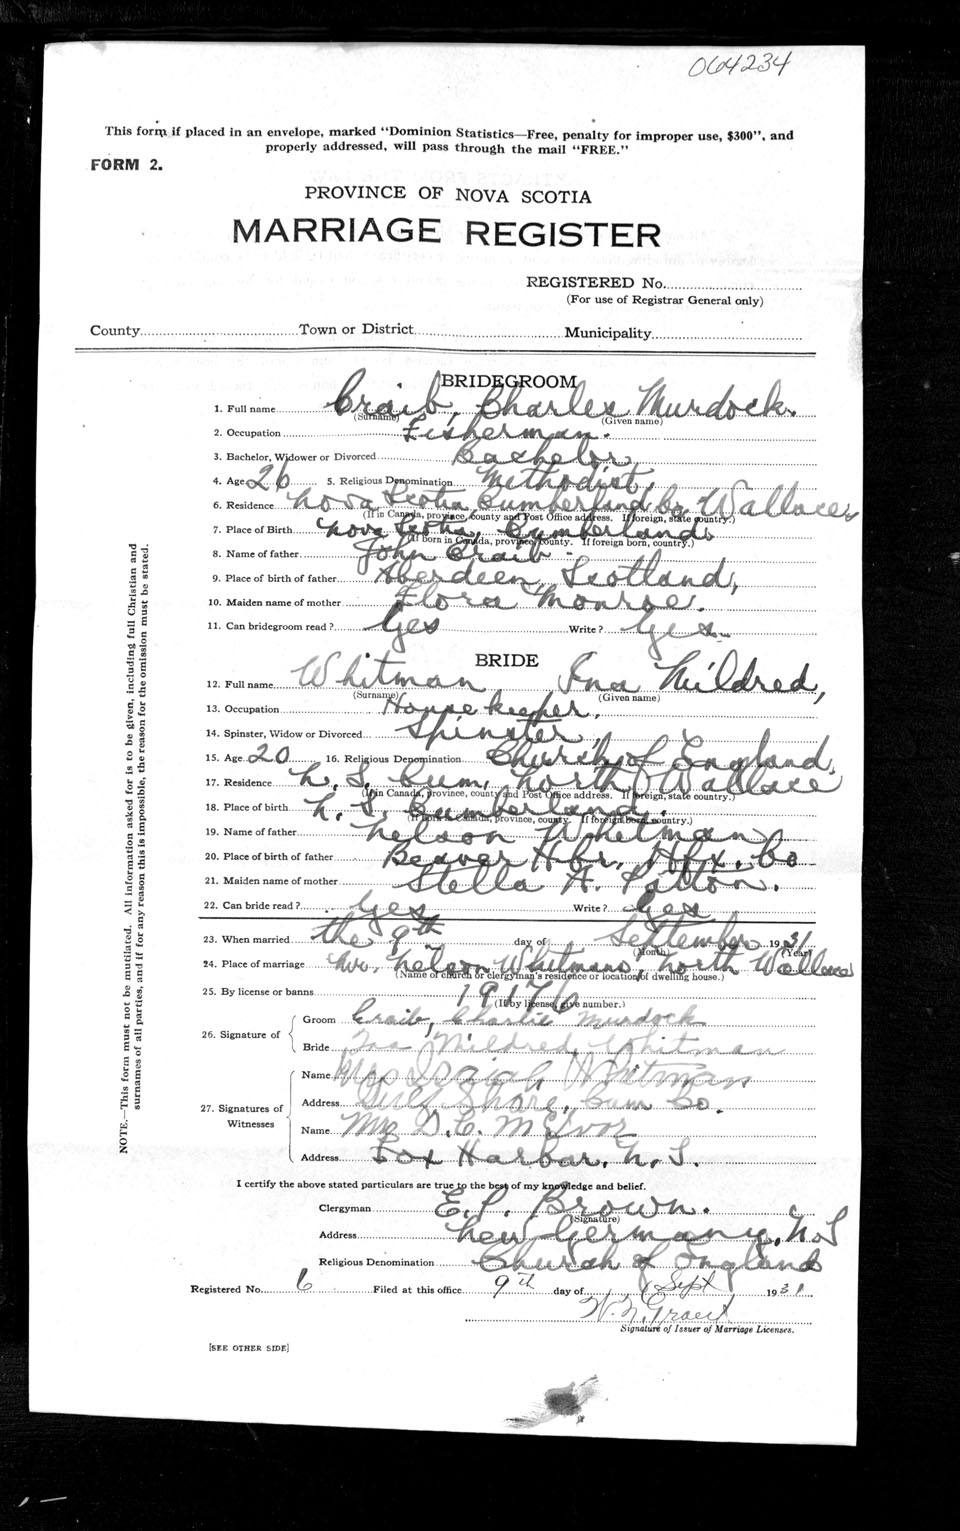 064234
This form if placed in an envelope, marked "Dominion Statistics—Free, penalty for improper use, $300", and
properly addressed, will pass through the mail "FREE."
FORM 2.
PROVINCE OF NOVA SCOTIA
MARRIAGE REGISTER
REGISTERED No.
(For use of Registrar General only)
County Town or District Municipality
BRIDEGROOM
1. Full name Craib, Charles Murdock.
(Surname) (Given name)
2. Occupation Fisherman.
3. Bachelor, Widower or Divorced Bachelor
4. Age 26 5. Religious Denomination Methodist,
6. Residence Nova Scotia, Cumberland Co Wallace
(If in Canada, province, county and Post Office address. If foreign, state country.)
7. Place of Birth Nova Scotia, Cumberland
(If born in Canada, province, county. If foreign born, country.)
8. Name of father John Craib
9. Place of birth of father Aberdeen, Scotland,
10. Maiden name of mother Flora Monroe.
11. Can bridegroom read? Yes Write? Yes.
BRIDE
12. Full name Whitman Ina Mildred,
(Surname) (Given name)
13. Occupation House keeper,
14. Spinster, Widow or Divorced Spinster,
15. Age 20 16. Religious Denomination Church of England,
17. Residence N. S. Cum. North Wallace
(If in Canada, province, county and Post Office address. If foreign, state country.)
18. Place of birth N. S. Cumberland.
(If born in Canada, province, county. If foreign born, country.)
19. Name of father Nelson Whitman
20. Place of birth of father Beaver Hbr, Hfx. Co
21. Maiden name of mother Stella A. Patton.
22. Can bride read? Yes Write? Yes
23. When married the 9th day of September 1931
(Month) (Year)
24. Place of marriage Nelson Whitmans, North Wallace
(Name of church or clergyman's residence or location of dwelling house.)
25. By license or banns 19176
(If by license, give number.)
26. Signature of
Groom Craib, Charlie Murdock
Bride Ina Mildred Whitman
27. Signatures of Witnesses
Name Mrs Isaiah Whitman
Address Gulf Shore, Cum Co.
Name Mrs D. C. McIvor
Address Fox Harbor, N. S.
I certify the above stated particulars are true to the best of my knowledge and belief.
Clergyman E. P. Brown.
(Signature)
Address New Germany, N.S
Religious Denomination Church of England
Registered No. 6 Filed at this office 9th day of Sept 1931
W. N.
Signature of Issuer of Marriage Licenses.
[SEE OTHER SIDE]
NOTE.—This form must not be mutilated. All information asked for is to be given, including full Christian and
surnames of all parties, and if for any reason this is impossible, the reason for the omission must be stated.